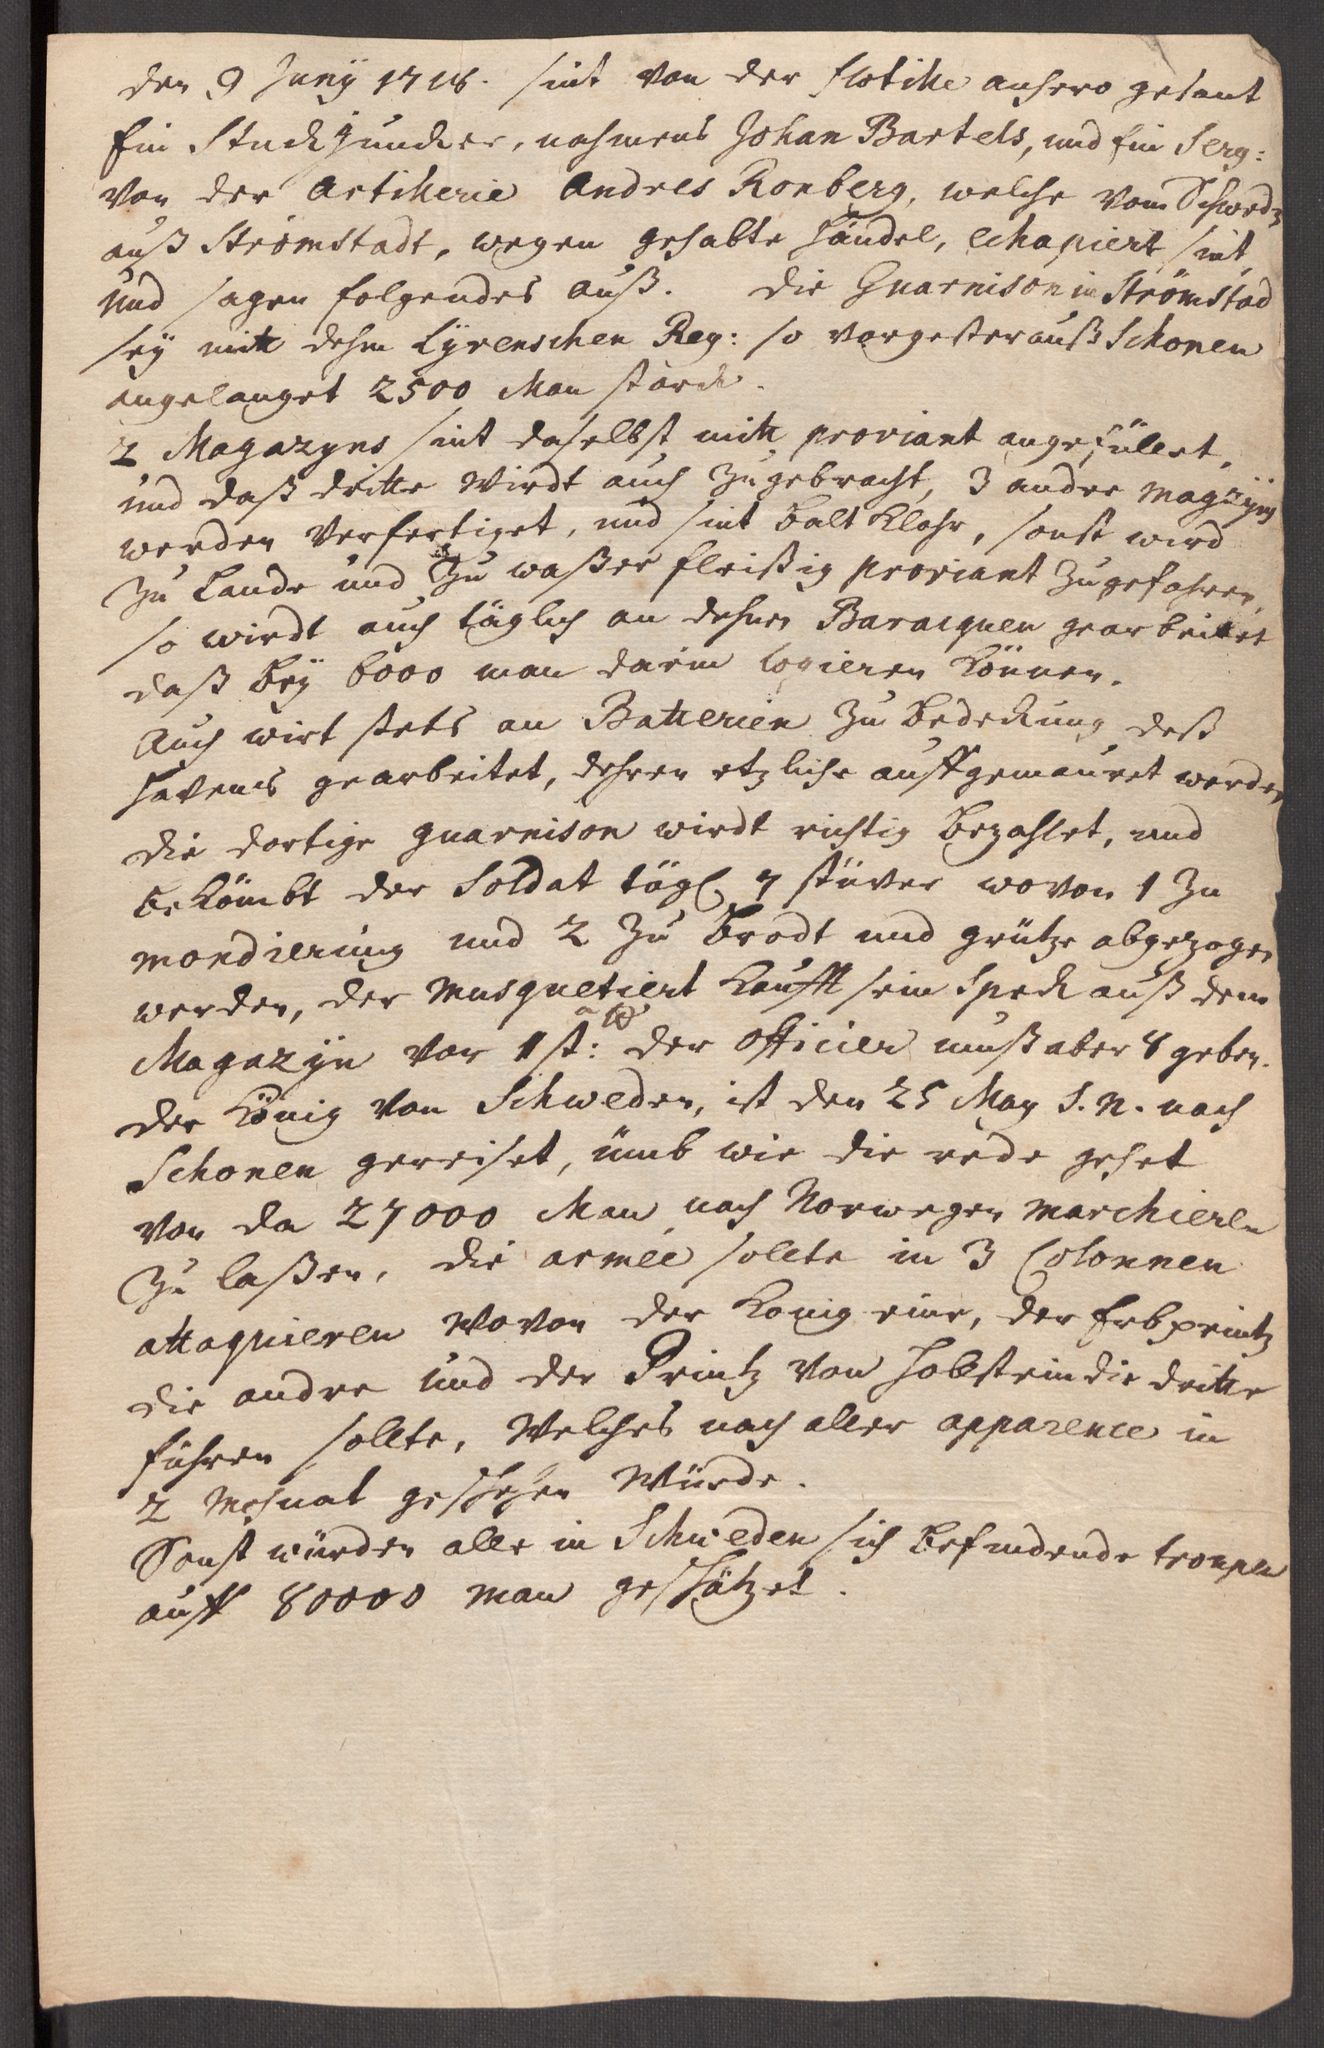 den 9 Junÿ 1718. sint von der flotille anhero gesant
Ein Stuckjuncker, nahmens Johan Bartels, und Ein Serg:
von der Artillerie Andres Ronberg, welche vom Schwed:
auß Strömstadt, wegen gehabte händel, echapiert sint,
und sagen folgendes auß. Die Guarnison in Strömstad
seÿ mitt dehm Lÿrenschen Reg: so vorgester auß Schonen
angelanget 2500 Man starck.
2 Magazyns sint daselbst mitt proviant angefüllet,
und daß dritte wirdt auch zugebracht, 3 andre magzÿns
werden verfertiget, und sint balt klahr, sonst wird
zu Lande und zu waßer fleißig proviant zugefahren,
so wirdt auch täglich an dehnen Baracquen gearbeittet
daß beÿ 6000 man darin logieren können.
Auch wirt stets an Batterien zu bedeckung deß
Havens gearbeitet, dehren etzliche auffgemauret werden
die dortige guarnison wirdt richtig bezahlet, und
bekömbt der Soldat tägl. 7 stüver wovon 1 zu
mondierung und 2 zu brodt und grütze abgezogen
werden, der musquetiert kaufft sein Speck auß dem
Magazÿn vor 1 st: a ℔ der officier muß aber 8 geben.
der König von Schweden, ist den 25 May S. N. nach
Schonen gereiset, ümb wie die rede gehet
von da 27000 Man nach Norwegen marchieren
zu laßen, die armée sollte in 3 Colonnen
attaquieren wovon der König eine, der Erbprintz
die andre und der Printz von Holstein die dritte
führen sollte, welches nach aller apparence in
2 Mohnat geschehen würde.
Sonst würden alle in Schweden sich befindende troupen
auff 80000 man geschätzet.